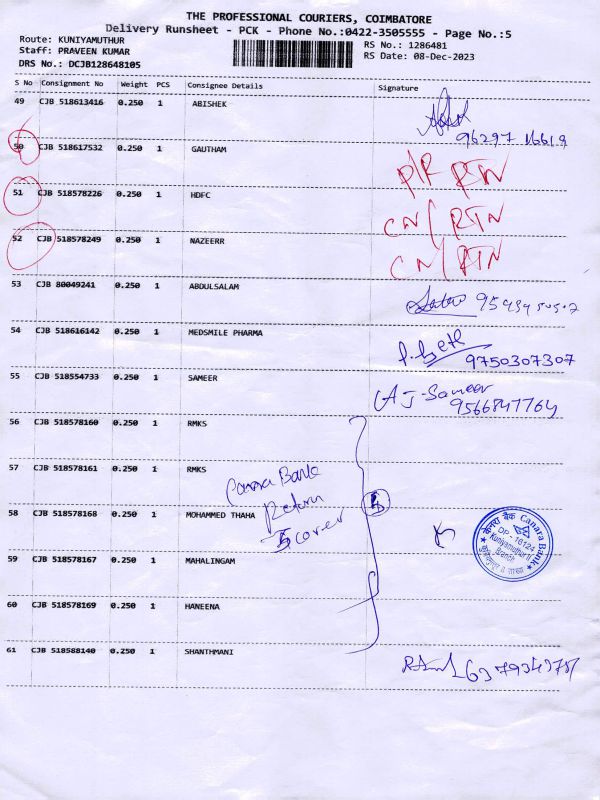 THE PROFESSIONAL COURIERS, COIMBATORE
Delivery Runsheet - PCK - Phone No.:0422-3505555 - Page No.:5
Route: KUNIYAMUTHUR
Staff: PRAVEEN KUMAR
DRS No.: DCJB128648105
RS No.: 1286481
RS Date: 08-Dec-2023
S No Consignment No Weight PCS Consignee Details Signature
49 CJB 518613416 0.250 1 ABISHEK
96297 16619
50 CJB 518617532 0.250 1 GAUTHAM P/R RTN
51 CJB 518578226 0.250 1 HDFC CN/RTN
52 CJB 518578249 0.250 1 NAZEERR CN/RTN
53 CJB 80049241 0.250 1 ABDULSALAM
54 CJB 518616142 0.250 1 MEDSMILE PHARMA
9750307307
55 CJB 518554733 0.250 1 SAMEER A J-Sameer
9566847764
56 CJB 518578160 0.250 1 RMKS
57 CJB 518578161 0.250 1 RMKS
Canara Bank
Return
cover
58 CJB 518578168 0.250 1 MOHAMMED THAHA
केनरा बैंक Canara Bank
DP - 16124
Kuniyamuthur II
Branch
शाखा
59 CJB 518578167 0.250 1 MAHALINGAM
60 CJB 518578169 0.250 1 HANEENA
61 CJB 518588140 0.250 1 SHANTHMANI